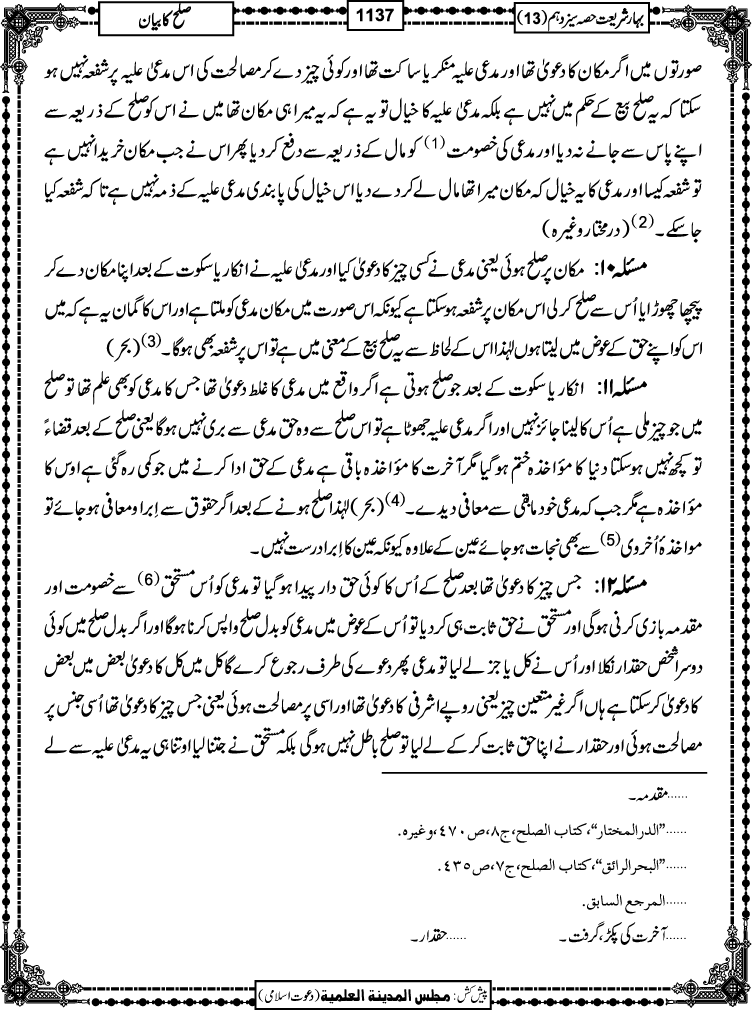 بہار شریعت حصہ سیزدہم (13)
1137
صلح کا بیان
صورتوں میں اگر مکان کا دعویٰ تھا اور مدعی علیہ منکر یا ساکت تھا اور کوئی چیز دے کر مصالحت کی اس مدعیٰ علیہ پر شفعہ نہیں ہو
سکتا کہ یہ صلح بیع کے حکم میں نہیں ہے بلکہ مدعیٰ علیہ کا خیال تو یہ ہے کہ یہ میرا ہی مکان تھا میں نے اس کو صلح کے ذریعہ سے
اپنے پاس سے جانے نہ دیا اور مدعی کی خصومت (1) کو مال کے ذریعہ سے دفع کر دیا پھر اس نے جب مکان خریدا نہیں ہے
تو شفعہ کیسا اور مدعی کا یہ خیال کہ مکان میرا تھا مال لے کر دے دیا اس خیال کی پابندی مدعی علیہ کے ذمہ نہیں ہے تاکہ شفعہ کیا
جا سکے۔ (2) (درمختار وغیرہ)
مسئلہ ۱۰: مکان پر صلح ہوئی یعنی مدعی نے کسی چیز کا دعویٰ کیا اور مدعیٰ علیہ نے انکار یا سکوت کے بعد اپنا مکان دے کر
پیچھا چھوڑایا اُس سے صلح کر لی اس مکان پر شفعہ ہو سکتا ہے کیونکہ اس صورت میں مکان مدعی کو ملتا ہے اور اس کا گمان یہ ہے کہ میں
اس کو اپنے حق کے عوض میں لیتا ہوں لہٰذا اس کے لحاظ سے یہ صلح بیع کے معنی میں ہے تو اس پر شفعہ بھی ہوگا۔ (3) (بحر)
مسئلہ ۱۱: انکار یا سکوت کے بعد جو صلح ہوتی ہے اگر واقع میں مدعی کا غلط دعویٰ تھا جس کا مدعی کو بھی علم تھا تو صلح
میں جو چیز ملی ہے اُس کا لینا جائز نہیں اور اگر مدعی علیہ جھوٹا ہے تو اس صلح سے وہ حق مدعی سے بری نہیں ہوگا یعنی صلح کے بعد قضاءً
تو کچھ نہیں ہو سکتا دنیا کا مؤاخذہ ختم ہو گیا مگر آخرت کا مؤاخذہ باقی ہے مدعی کے حق ادا کرنے میں جو کمی رہ گئی ہے اوس کا
مؤاخذہ ہے مگر جب کہ مدعی خود مابقی سے معافی دیدے۔ (4) (بحر) لہٰذا صلح ہونے کے بعد اگر حقوق سے اِبرا و معافی ہو جائے تو
مواخذۂ اُخروی (5) سے بھی نجات ہو جائے عین کے علاوہ کیونکہ عین کا اِبرا درست نہیں۔
مسئلہ ۱۲: جس چیز کا دعویٰ تھا بعد صلح کے اُس کا کوئی حق دار پیدا ہو گیا تو مدعی کو اُس مستحق (6) سے خصومت اور
مقدمہ بازی کرنی ہوگی اور مستحق نے حق ثابت ہی کر دیا تو اُس کے عوض میں مدعی کو بدل صلح واپس کرنا ہوگا اور اگر بدل صلح میں کوئی
دوسرا شخص حقدار نکلا اور اُس نے کل یا جز لے لیا تو مدعی پھر دعوے کی طرف رجوع کرے گا کل میں کل کا دعویٰ بعض میں بعض
کا دعویٰ کر سکتا ہے ہاں اگر غیر متعین چیز یعنی روپے اشرفی کا دعویٰ تھا اور اسی پر مصالحت ہوئی یعنی جس چیز کا دعویٰ تھا اُسی جنس پر
مصالحت ہوئی اور حقدار نے اپنا حق ثابت کر کے لے لیا تو صلح باطل نہیں ہوگی بلکہ مستحق نے جتنا لیا اوتنا ہی یہ مدعیٰ علیہ سے لے
......مقدمہ۔
......"الدر المختار"، كتاب الصلح، ج٨، ص٤٧٠، وغيره.
......"البحر الرائق"، كتاب الصلح، ج٧، ص٤٣٥.
......المرجع السابق.
......آخرت کی پکڑ، گرفت۔ ......حقدار۔
پیش کش: مجلس المدینة العلمیة (دعوت اسلامی)